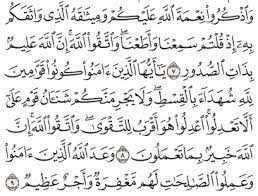 وَاذْكُرُوا نِعْمَةَ اللَّهِ عَلَيْكُمْ وَمِيثَاقَهُ الَّذِي وَاثَقَكُم
بِهِ إِذْ قُلْتُمْ سَمِعْنَا وَأَطَعْنَا وَاتَّقُوا اللَّهَ إِنَّ اللَّهَ عَلِيمٌ
بِذَاتِ الصُّدُورِ ٧ يَا أَيُّهَا الَّذِينَ آمَنُوا كُونُوا قَوَّامِينَ
لِلَّهِ شُهَدَاءَ بِالْقِسْطِ وَلَا يَجْرِمَنَّكُمْ شَنَآنُ قَوْمٍ عَلَىٰ
أَلَّا تَعْدِلُوا اعْدِلُوا هُوَ أَقْرَبُ لِلتَّقْوَىٰ وَاتَّقُوا اللَّهَ إِنَّ
اللَّهَ خَبِيرٌ بِمَا تَعْمَلُونَ ٨ وَعَدَ اللَّهُ الَّذِينَ آمَنُوا
وَعَمِلُوا الصَّالِحَاتِ لَهُم مَّغْفِرَةٌ وَأَجْرٌ عَظِيمٌ ٩